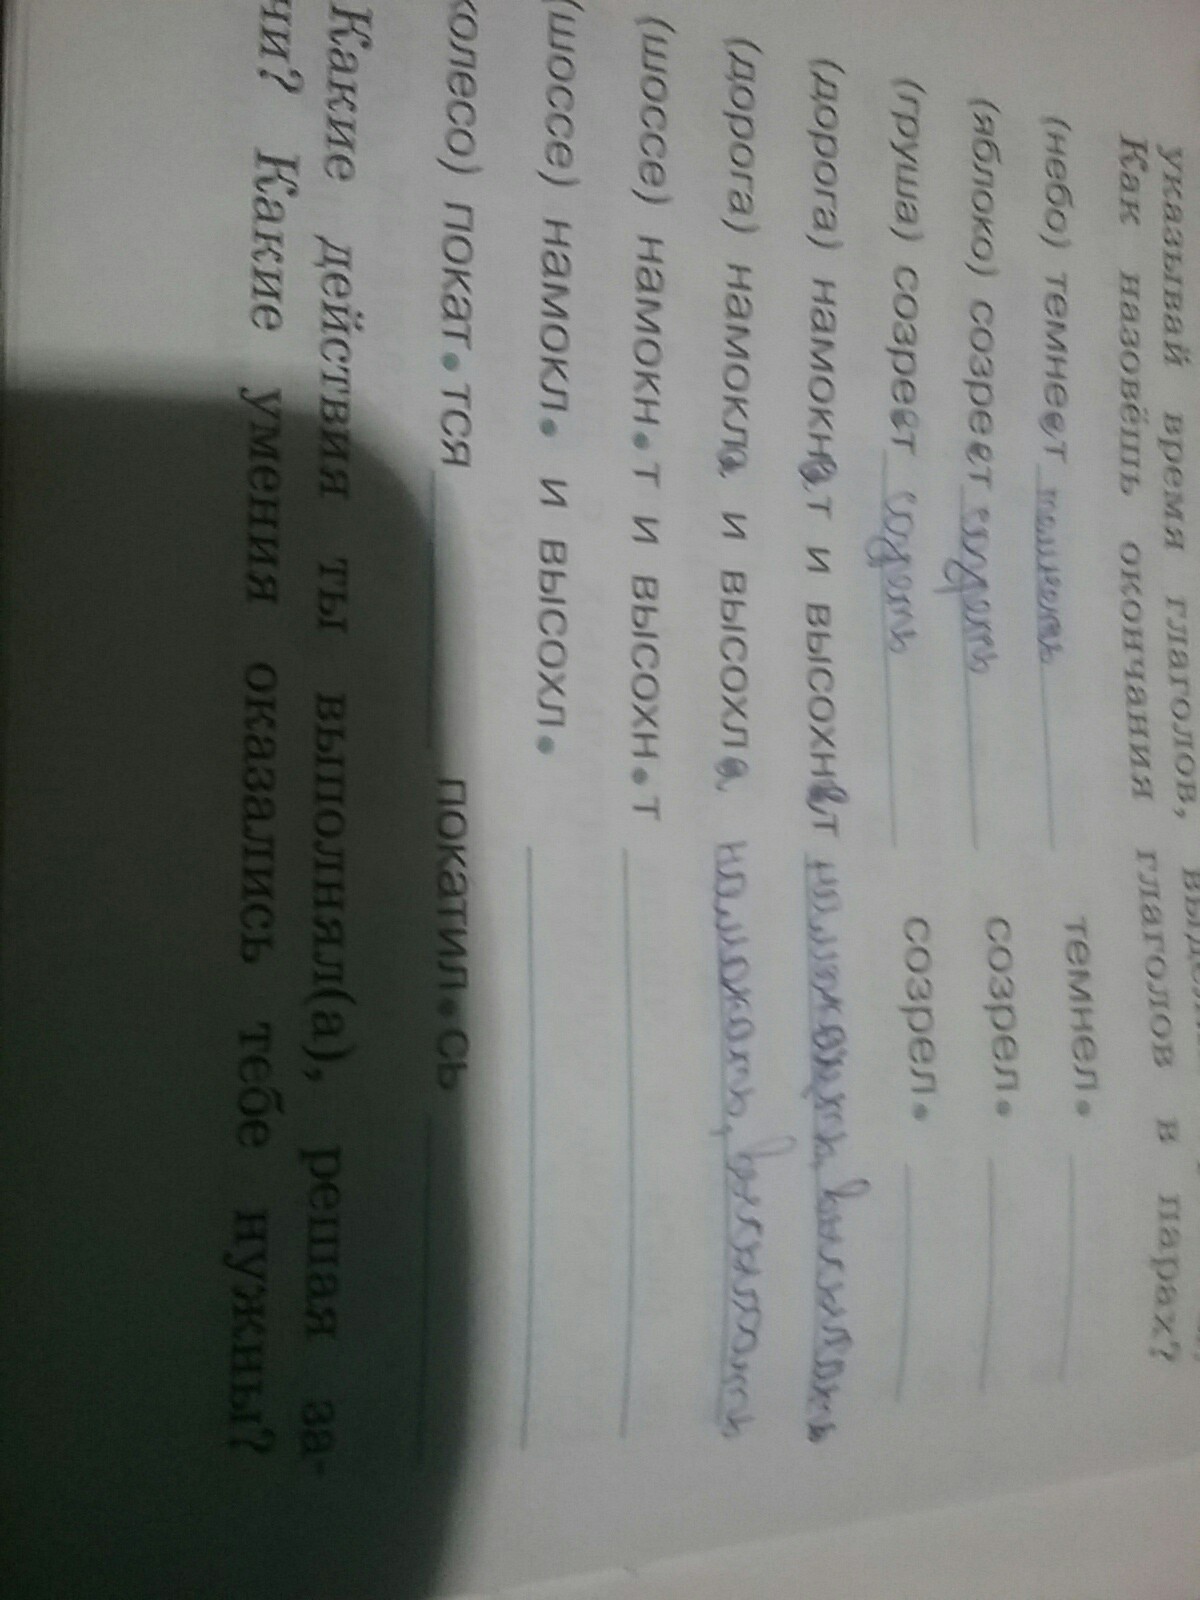 указывай время глаголов,
Как назовёшь окончания глаголов в парах?
(небо) темнеет темнеть темнел•
(яблоко) созреет созреть созрел•
(груша) созреет созреть созрел•
(дорога) намокнет и высохнет
(дорога) намокла и высохла
(шоссе) намокн•т и высохн•т
(шоссе) намокл• и высохл•
колесо) покат•тся покатил•сь
Какие действия ты выполнял(а), решая за-
чи? Какие умения оказались тебе нужны?